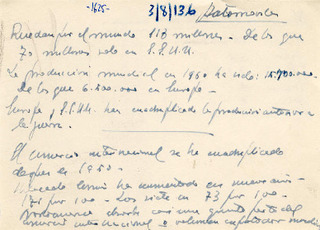 -1625-
3/8/136 Automoviles
Ruedan por el mundo 118 millones. De los que
70 millones solo en E.E.U.U.
La producción mundial en 1960 ha sido: 15.900.000
De los que 6.200.000 en Europa.
Europa y E.E.U.U. han cuadruplicado la producción anterior a
la guerra.
El comercio internacional se ha cuadruplicado
después en 1950.
Mercado común ha aumentado en nueve años
171 por 100. Los siete en 73 por 100.
absorbe casi una quinta parte del
comercio internacional o volumen exportador mundial